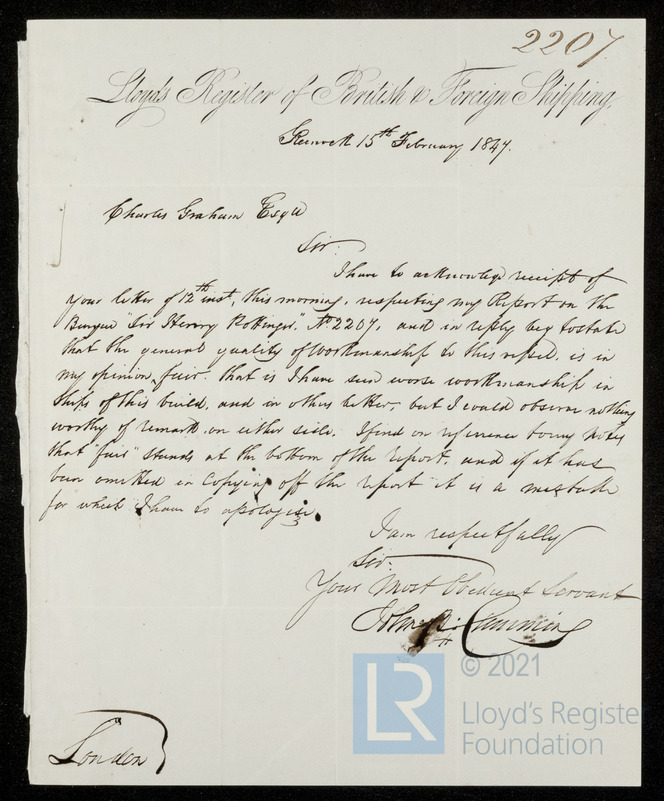 2207
Lloyd's Register of British & Foreign Shipping,
Greenock 15th February 1847.
Charles Graham Esqre
Sir.
I have to acknowledge receipt of
your letter of 12th inst, this morning, respecting my Report on the
Barque "Sir Henry Pottinger", No 2207, and in reply beg to state
that the general quality of workmanship to this vessel, is in
my opinion fair. that is I have seen worse workmanship in
ships of this build, and in others better, but I could observe nothing
worthy of remark on either side. I find on reference to my notes
that "fair" stands at the bottom of the report, and if it has
been omitted in copying off the report it is a mistake
for which I have to apologise.
I am respectfully
Sir.
Your Most Obedient Servant
John Cumming
London
© 2021
LR
Lloyd's Registe
Foundation